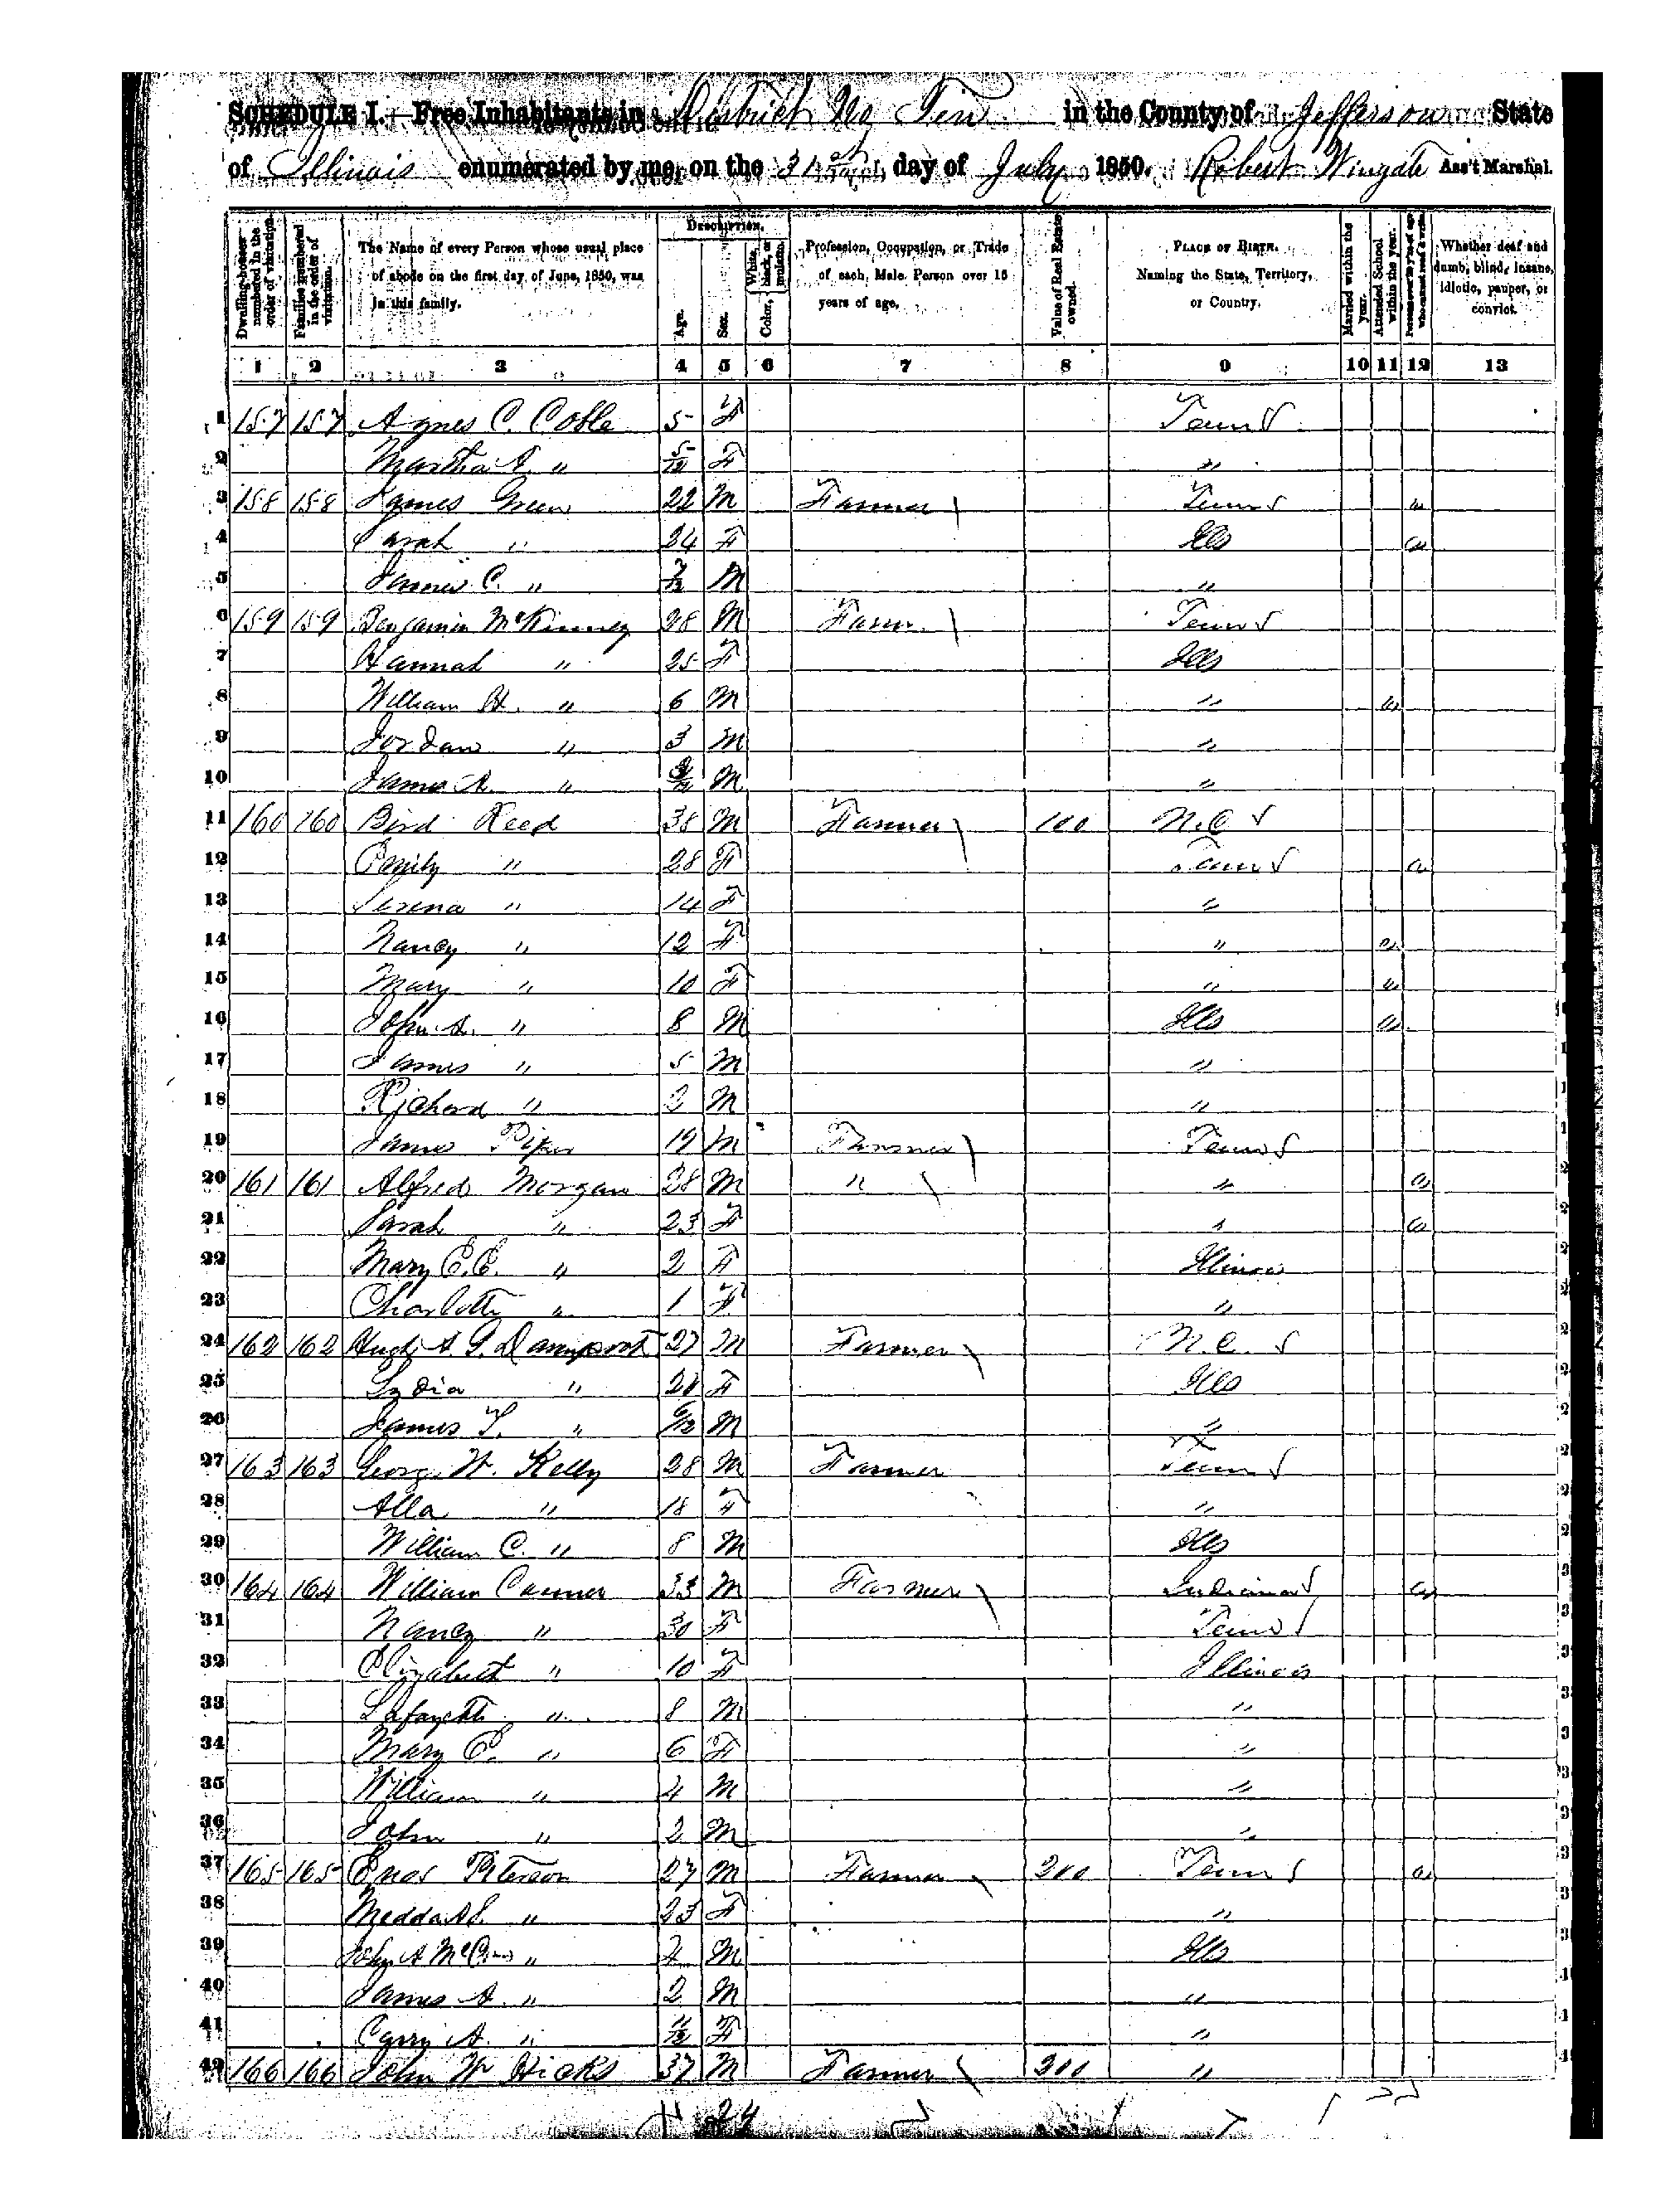 SCHEDULE I. Free Inhabitants in District No Ten in the County of Jefferson State
of Illinois enumerated by me, on the 31st day of July 1850. Robert Wingate Ass't Marshal.
Dwelling-houses numbered in the order of visitation.
Families numbered in the order of visitation.
The Name of every Person whose usual place of abode on the first day of June, 1850, was in this family.
Description.
Age.
Sex.
Color, White, black, or mulatto.
Profession, Occupation, or Trade of each Male Person over 15 years of age.
Value of Real Estate owned.
Place of Birth. Naming the State, Territory, or Country.
Married within the year.
Attended School within the year.
Whether deaf and dumb, blind, insane, idiotic, pauper, or convict.
1 2 3 4 5 6 7 8 9 10 11 12 13
1 157 157 Agnes C. Coble 5 F Tenn
2 Martha " 5/12 F "
3 158 158 James Green 22 M Farmer Tenn
4 Sarah " 24 F Ills
5 James C. " 7/12 M "
6 159 159 Benjamin McKinney 28 M Farm Tenn
7 Hannah " 25 F Ills
8 William H. " 6 M "
9 Jordan " 3 M "
10 James R. " M "
11 160 160 Bird Reed 38 M Farmer 100 N.C
12 Emily " 28 F Tenn
13 Serena " 14 F "
14 Nancy " 12 F "
15 Mary " 10 F "
16 John A. " 8 M Ills
17 James " 5 M "
18 Richard " 2 M "
19 James Piper 19 M Farmer Tenn
20 161 161 Alfred Morgan 28 M " "
21 Sarah " 23 F "
22 Mary E.E. " 2 F Illinois
23 Charlotte " 1 F "
24 162 162 Hugh A. G. Davenport 27 M Farmer N.C.
25 Lydia " F Ills
26 James T. " 6/12 M "
27 163 163 George W. Kelly 28 M Farmer Tenn
28 Alla " 18 F "
29 William C. " 8 M Ills
30 164 164 William Carner 33 M Farmer Indiana
31 Nancy " 30 F Tenn
32 Elizabeth " 10 F Illinois
33 Lafayette " 8 M "
34 Mary E. " 6 F "
35 William " 4 M "
36 John " 2 M "
37 165 165 Enos Peterson 27 M Farmer 200 Tenn
38 " 23 F "
39 John A " 4 M Ills
40 James A. " 2 M "
41 A. " 11/12 F "
42 166 166 John W Hicks 37 M Farmer 300 "
24